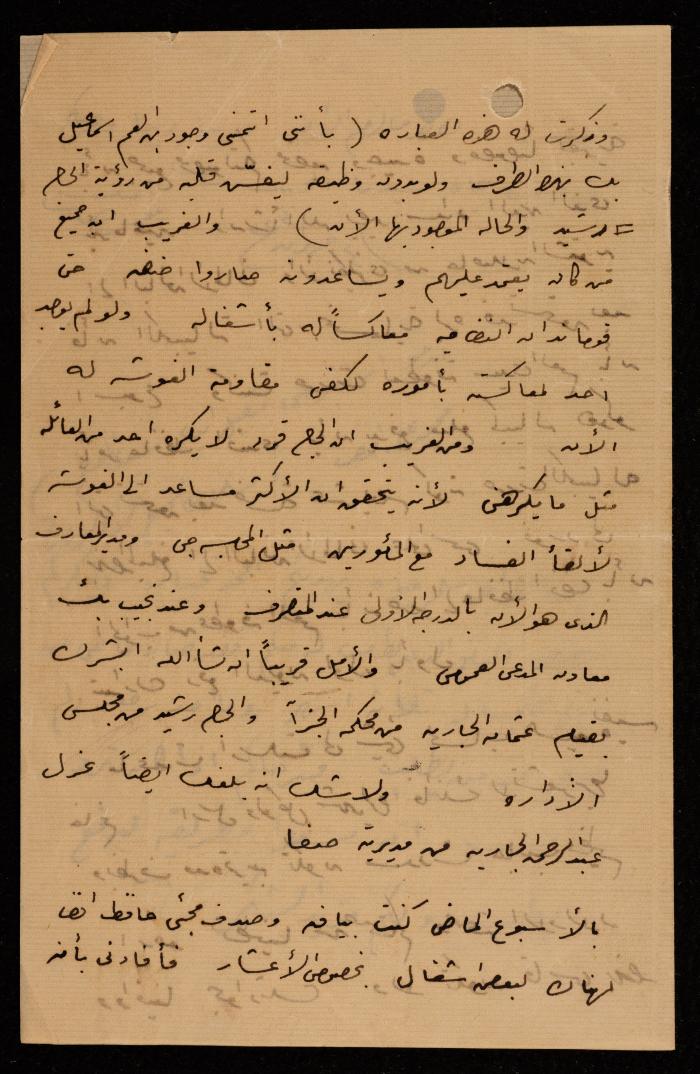 وذكرت له هذه العباره ( بأنني اتمنى وجود ابن العم اسماعيل
بك بهذا الطرف ولو بدون وظيفه ليفش قلبه من رؤية الحاج
رشيد والحاله الموجود بها الأن ) والغريب ان جميع
من كان يعتمد عليهم ويساعدونه صاروا ضده حتى
قوماندان النظاميه معاكساً له بأشغاله ولو لم يوجد
احد لمعاكسته بأموره لكفى مقاومة الفوته له
الأن ومن الغريب ان الحاج قرر لا يكره احد من العائله
مثل ما يكرهني لأنه يتحقق ان الأكثر مساعد الى الفوته
لألقأ الفساد مع المأمورين مثل المحاسبه جي ومدير المعارف
الذى هو الأن بالدرجة الاولى عند المتصرف وعند نجيب بك
معاون المدعى العمومى والأمل قريباً ان شاالله ابشرك
بقيام عثمان الجاريه من محكمة الجزآ والحاج رشيد من مجلس
الأداره ولا شك انه بلغك ايضاً عزل
عبد الرحمن الجاريه من مديرية صنعا
بالأسبوع الماضى كنت بيافه وصدف مجئى حافظ افندى
لهناك لبعض اشغال بخصوص الأعشار فأفادنى بأنه